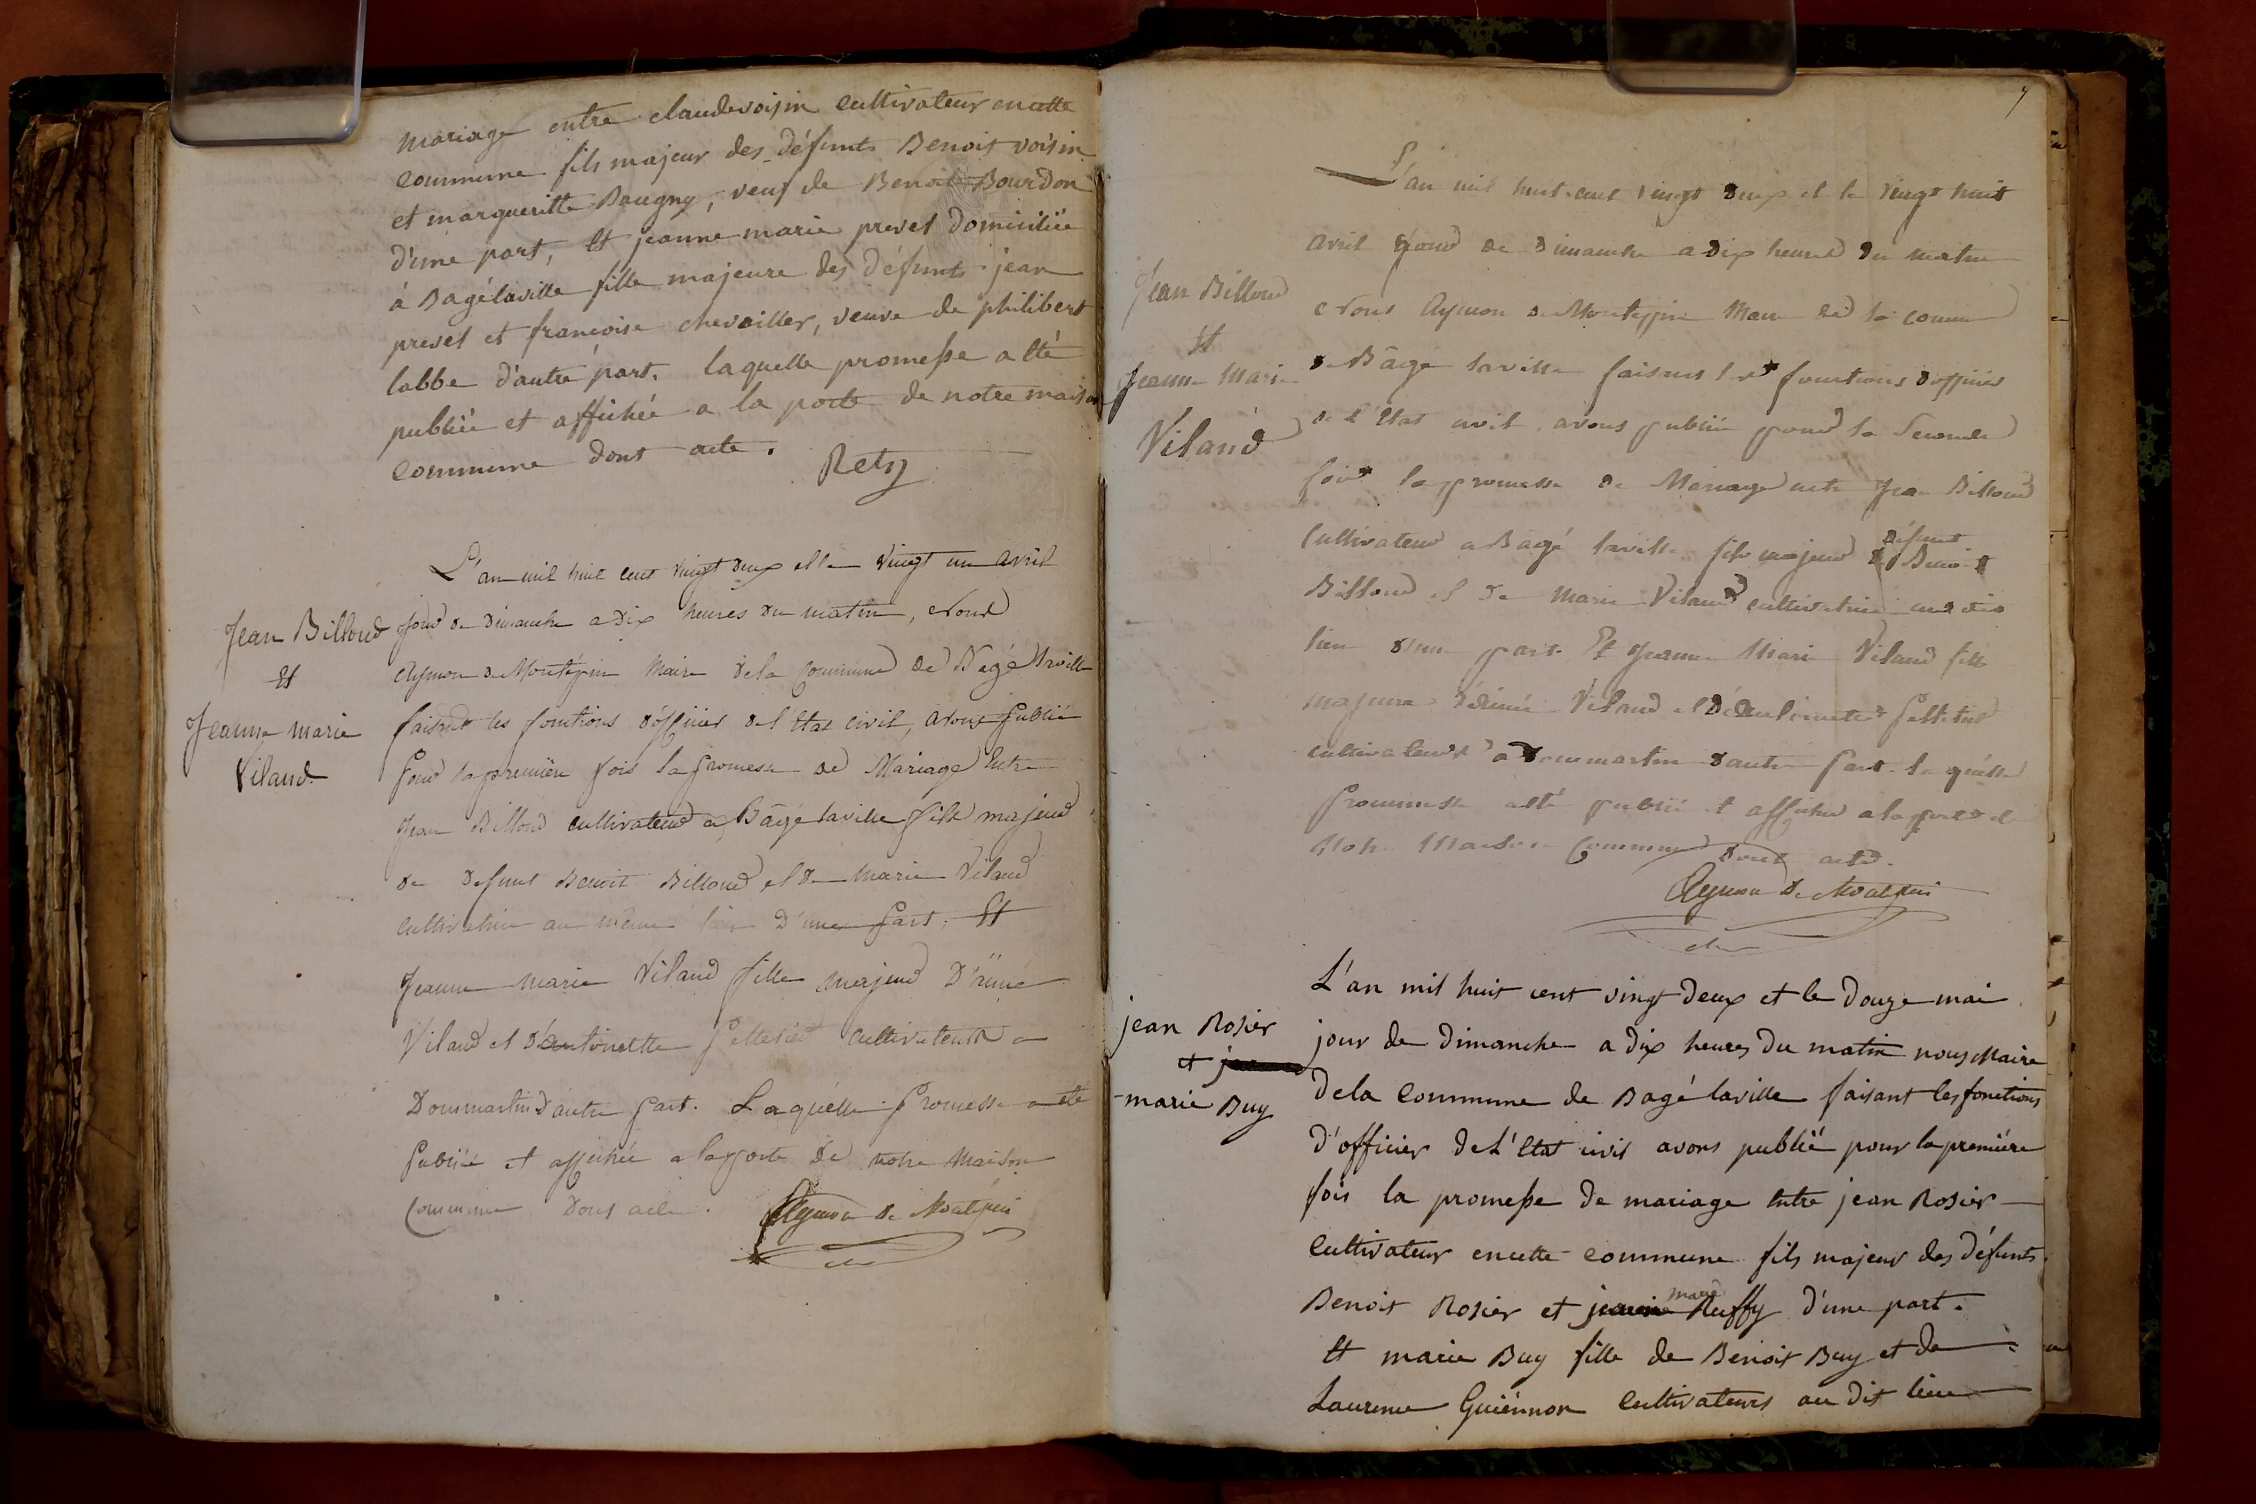 mariage entre claude voisin cultivateur en cette
commune fils majeur des défunts Benoit voisin
et margueritte Bougny, veuf de Benoit Bourdon
d'une part, Et jeanne marie prevel domiciliée
à Bagé laville fille majeure des défunts jean
prevel et françoise chevailler, veuve de philibert
labbe d'autre part. laquelle promesse a été
publiée et affichée a la porte de notre maison
commune dont acte.
Rety
Jean Billoud
Et
Jeanne marie
Viland
L'an mil huit cent vingt deux et le vingt un avril
jour de dimanche a dix heures du matin, Nous
Aymon de Montépin Maire de la Commune de Bagé laville
faisant les fonctions d'officier de l'Etat civil, avons publié
pour la première fois la promesse de Mariage Entre
Jean Billoud cultivateur a Bâgé laville fils majeur
de defunt Benoit Billoud et de Marie Viland
cultivatrice au même lieu d'une part, Et
Jeanne marie Viland fille majeure d'aimé
Viland et d'antoinette Pelletier cultivateurs a
Dommartin d'autre part. Laquelle Promesse a été
Publiée et affichée a la porte de notre Maison
Commune Dont acte.
Aymon De Montépin
7
Jean Billoud
Et
Jeanne Marie
Viland
L'an mil huit cent vingt deux et le vingt huit
avril jour de dimanche a dix heures du matin
Nous Aymon de Monteppin Maire de la commune
de Bâgé laville faisant les fonctions d'officier
de l'Etat civil, avons publié pour la Seconde
fois la promesse de Mariage entre Jean Billoud
Cultivateur a Bagé laville fils majeur de défunt Benoit
Billoud et de Marie Viland cultivatrice au dit
lieu d'une part. Et Jeanne Marie Viland fille
majeure d'aimé Viland et d'antoinette Pelletier
cultivateurs à Dommartin d'autre Part. la quelle
Promesse a été publiée et affichée a la porte de
Notre Maison Commune dont acte.
Aymon De Montépin
jean Rosier
et jeanne
marie Buy
L'an mil huit cent vingt deux et le douze mai
jour de dimanche a dix heures du matin nous Maire
de la commune de Bagé laville faisant les fonctions
d'officier de L'Etat civil avons publié pour la première
fois la promesse de mariage Entre jean Rosier
cultivateur en cette commune fils majeur des défunts
Benoit Rosier et jeanne marie Ruffy d'une part.
Et marie Buy fille de Benoit Buy et de
Laurence Guiennon cultivateurs au dit lieu